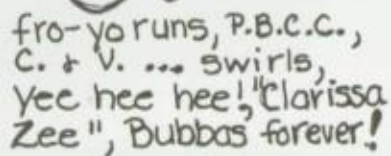 fro-yo runs, P.B.C.C.,
C. & V. ... swirls,
Yee hee hee!, "Clarissa
Zee", Bubbas forever!